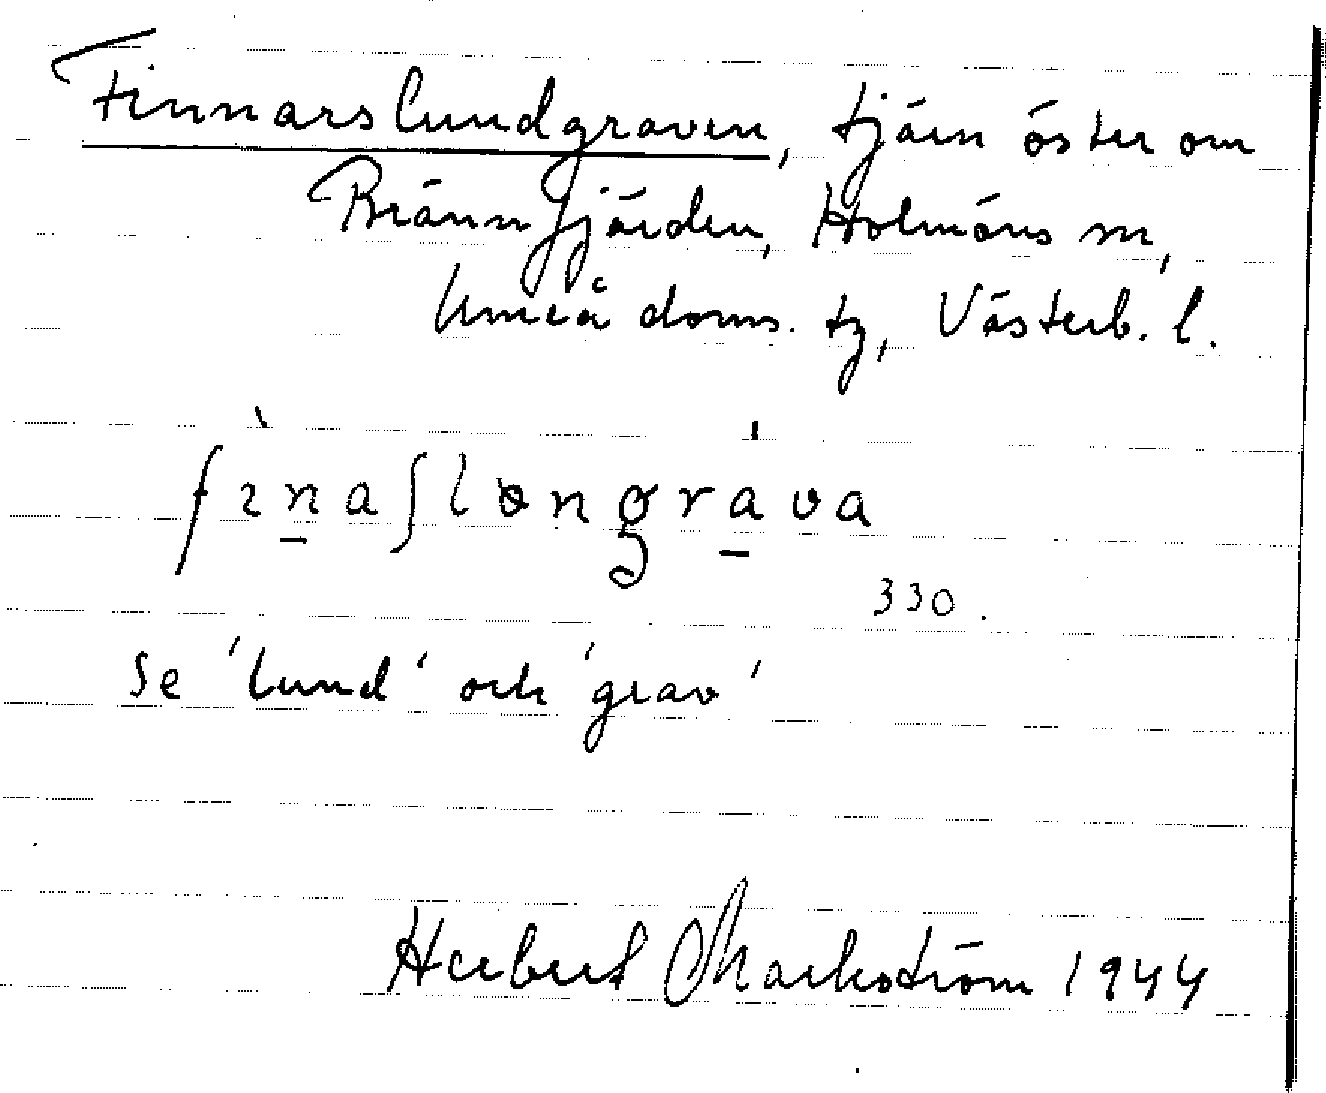 Finnarslundgraven, tjärn öster om
Brännfjärden, Holmöns sn,
Umeå doms. tg, Västerb. l.
fɪ̀naʃlɵngráva
330.
Se 'lund' och 'grav'
Herbert Markström 1944